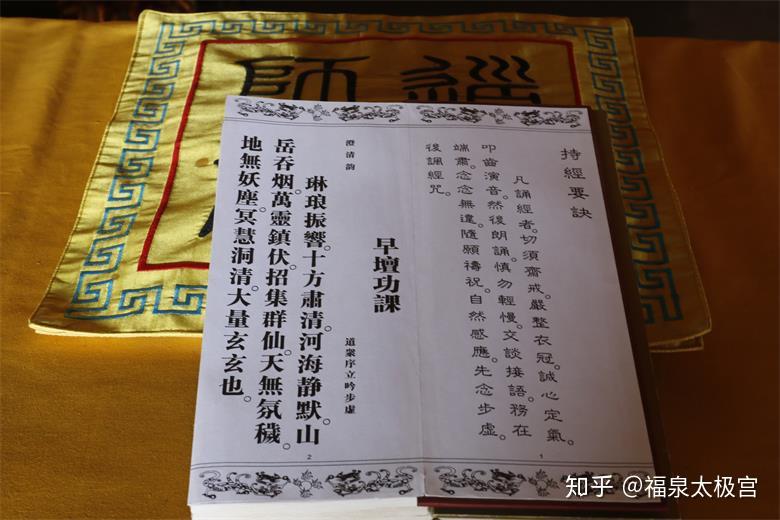 經
師
持經要訣
凡誦經者。切須齋戒。嚴整衣冠。誠心定氣。
叩齒演音。然後朗誦。慎勿輕慢。交談接語。務在
端肅。念念無違。隨願禱祝。自然感應。先念步虛。
後諷經咒。
1
早壇功課
道眾序立吟步虛
澄清韵
琳琅振響。十方肅清。河海静默。山
岳吞烟。萬靈鎮伏。招集群仙。天無氛穢。
地無妖塵。冥慧洞清。大量玄玄也。
2
知乎 @福泉太极宫